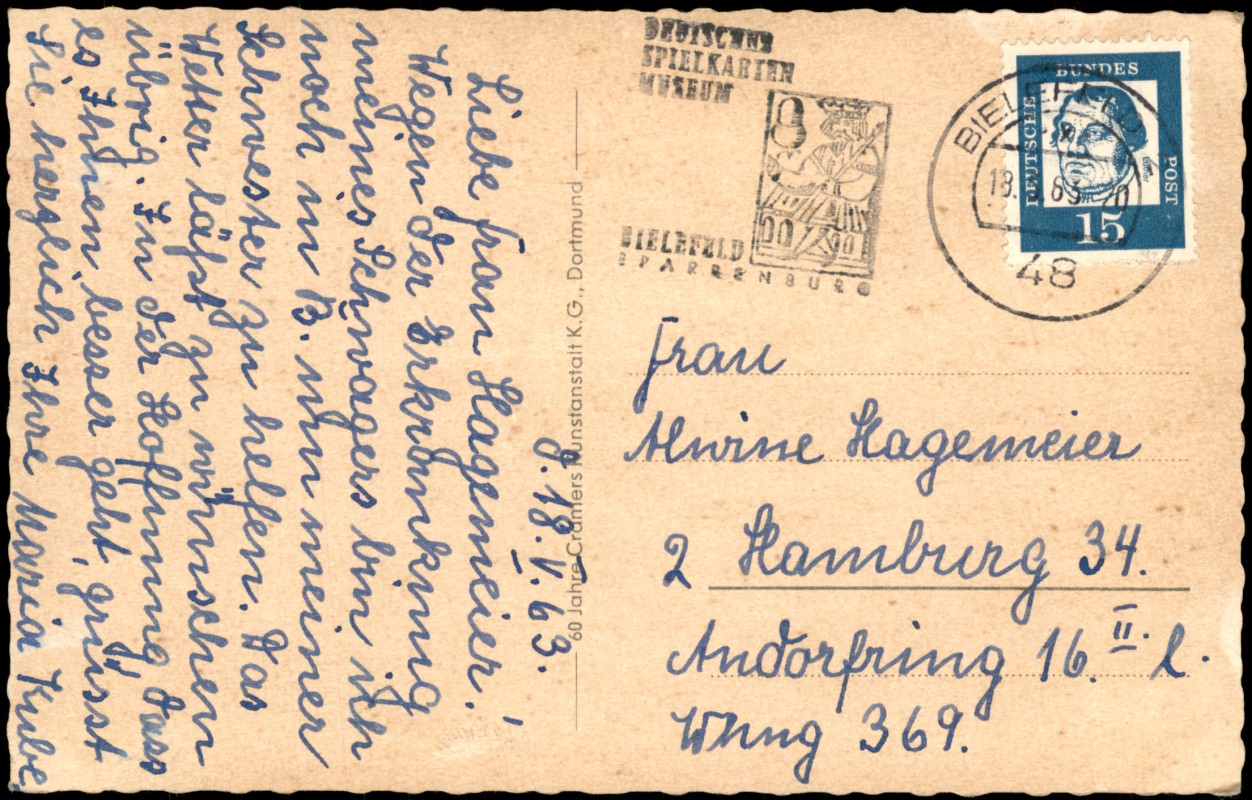 d. 18. V. 63.
Liebe Frau Hagemeier!
Wegen der Erkrankung
meines Schwagers bin ich
noch in B. um meiner
Schwester zu helfen. Das
Wetter läßt zu wünschen
übrig. In der Hoffnung dass
es Ihnen besser geht, grüsst
Sie herzlich Ihre Maria Kube.
60 Jahre Cramers Kunstanstalt K.G., Dortmund
DEUTSCHES
SPIELKARTEN
MUSEUM
BIELEFELD
SPARRENBURG
BIELEFELD
48
DEUTSCHE
BUNDES
POST
15
Frau
Alwine Hagemeier
2 Hamburg 34.
Andorfring 16. II. l.
Whng 369.